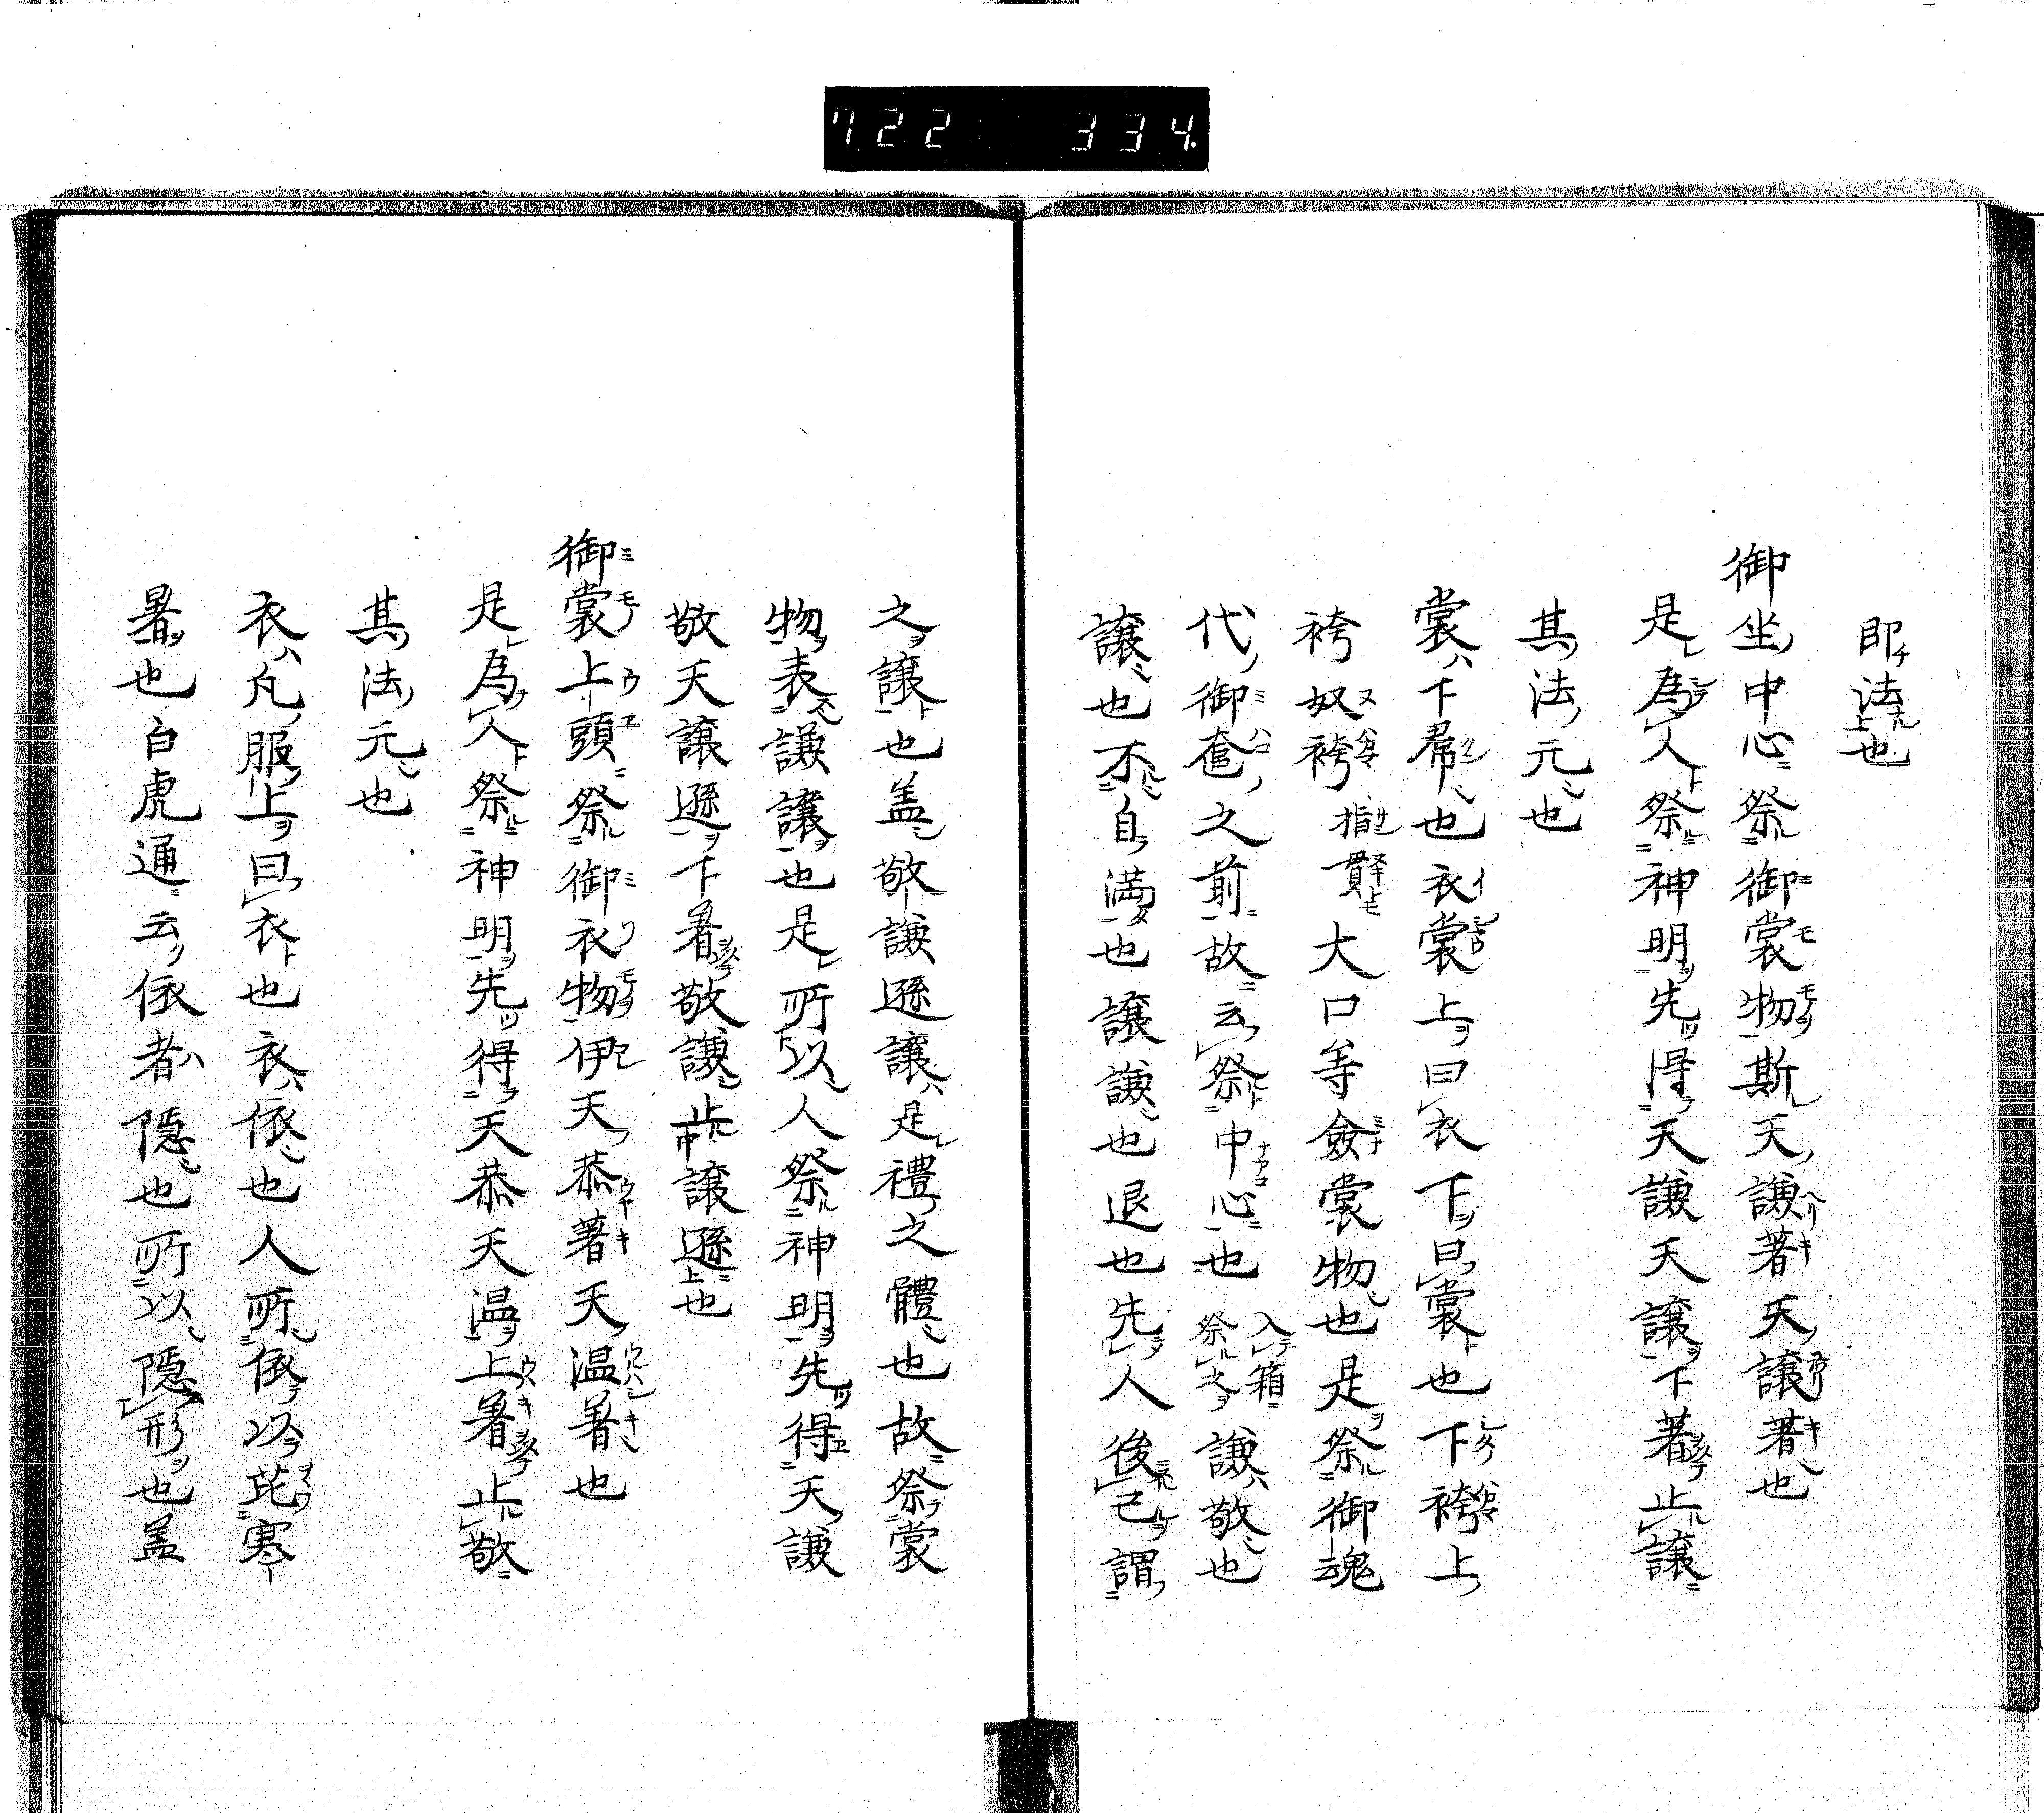 722 334.
即法也
御坐中心祭御裳物斯天謙著天譲著也
是為人祭神明先得天謙天譲下著止譲
其法元也
裳下帬也衣裳上曰衣下曰裳也下袴上
袴奴袴指貫大口等僉裳物也是祭御魂
代御奩之前故云祭中心也入箱祭之謙敬也
譲也不自満也譲謙也退也先人後己謂
之譲也盖敬謙遜譲是禮之體也故祭裳
物表謙譲也是所以人祭神明先得天謙
敬天譲遜下著敬謙止譲遜也
御裳上頭祭御衣物伊天恭著天温著也
是為人祭神明先得天恭天温上著止敬
其法元也
衣凡服上曰衣也衣依也人所依以芘寒
暑也白虎通云依者隠也所以隠形也盖